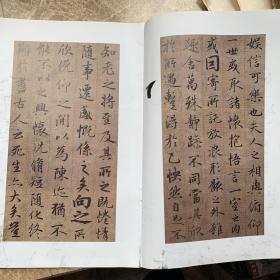 娱信可樂也夫人之相與俯仰
一世或取諸懷抱悟言一室之内
或因寄所託放浪形骸之外雖
趣舍萬殊靜躁不同當其欣
於所遇蹔得於己怏然自足不
知老之將至及其所之既惓情
隨事遷感慨係之矣向之所
欣俛仰之閒以為陳迹猶不
能不以之興懷況脩短隨化終
期於盡古人云死生亦大矣豈